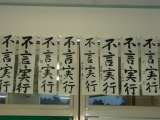 不言実行
不言実行
不言実行
不言実行
不言実行
不言実行
不言実行
不言実行